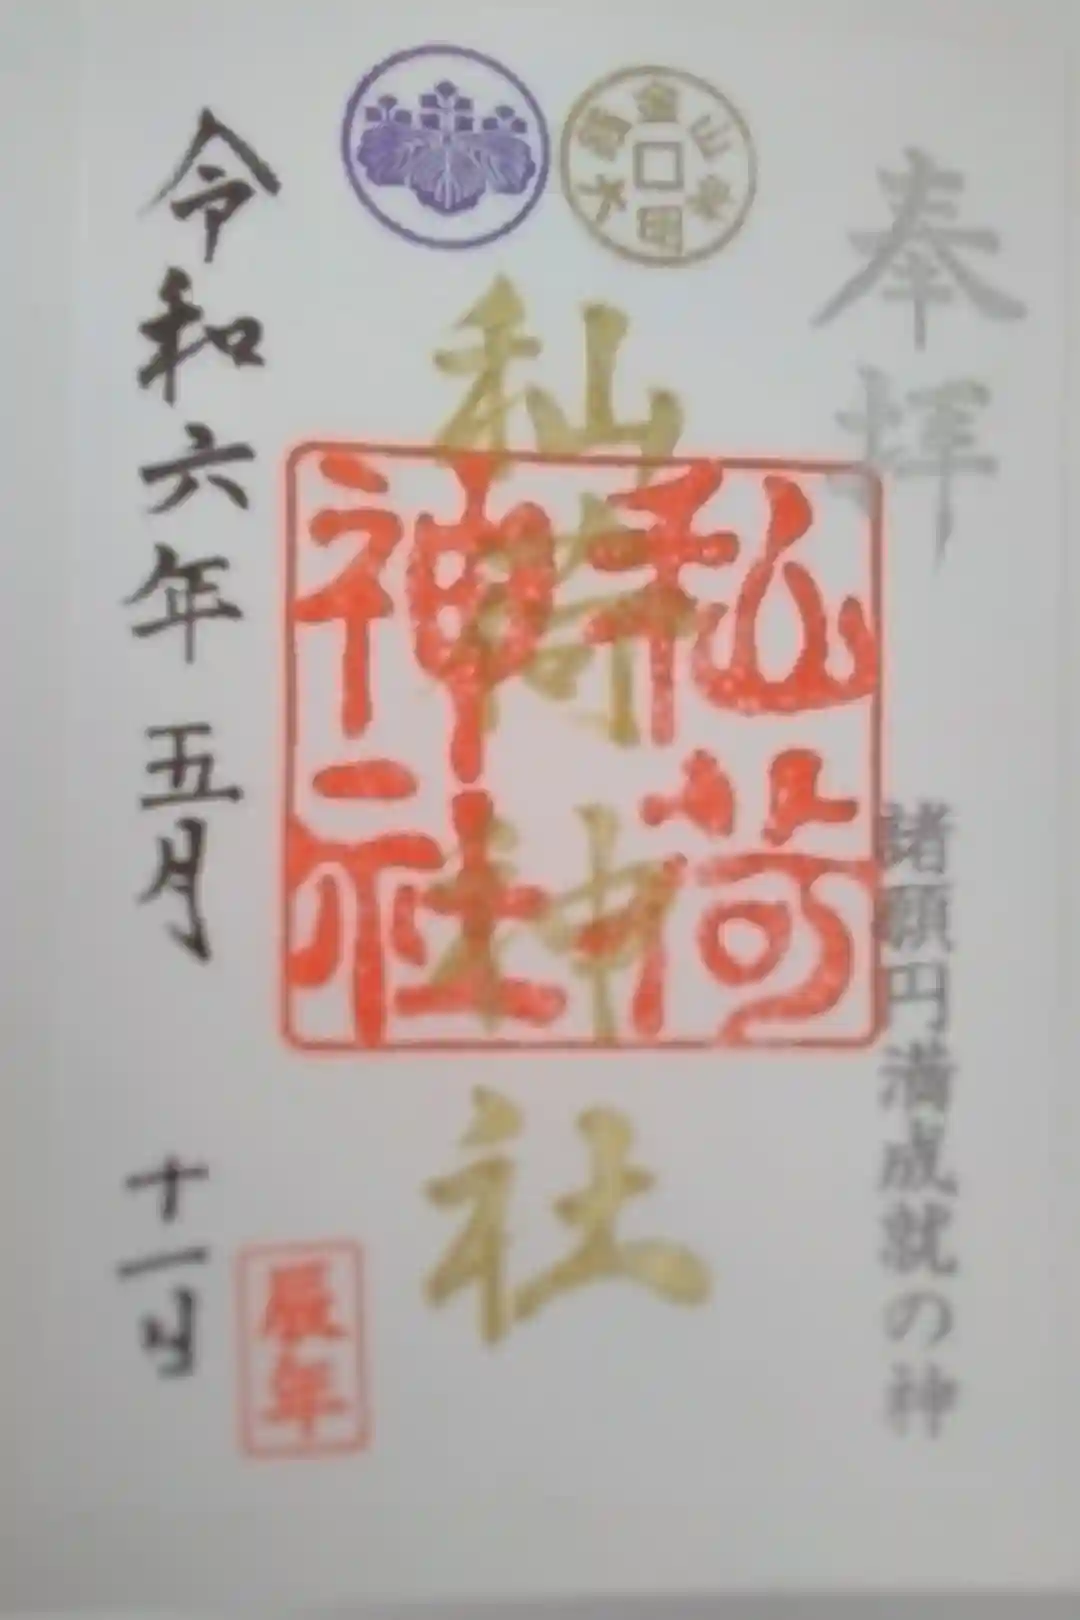 奉拝
諸願円満成就の神
秈荷神社
秈荷神社
令和六年五月十一日
辰年